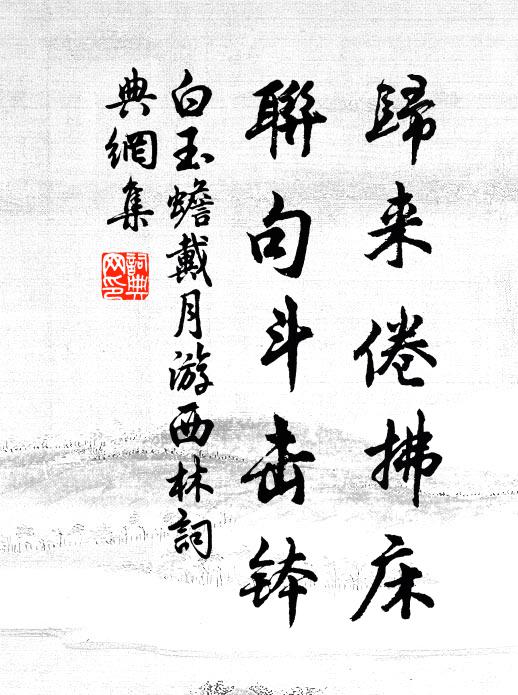 歸来倦拂床
聯句斗击鉢
白玉蟾戴月游西林詞
典網集
詞典网印